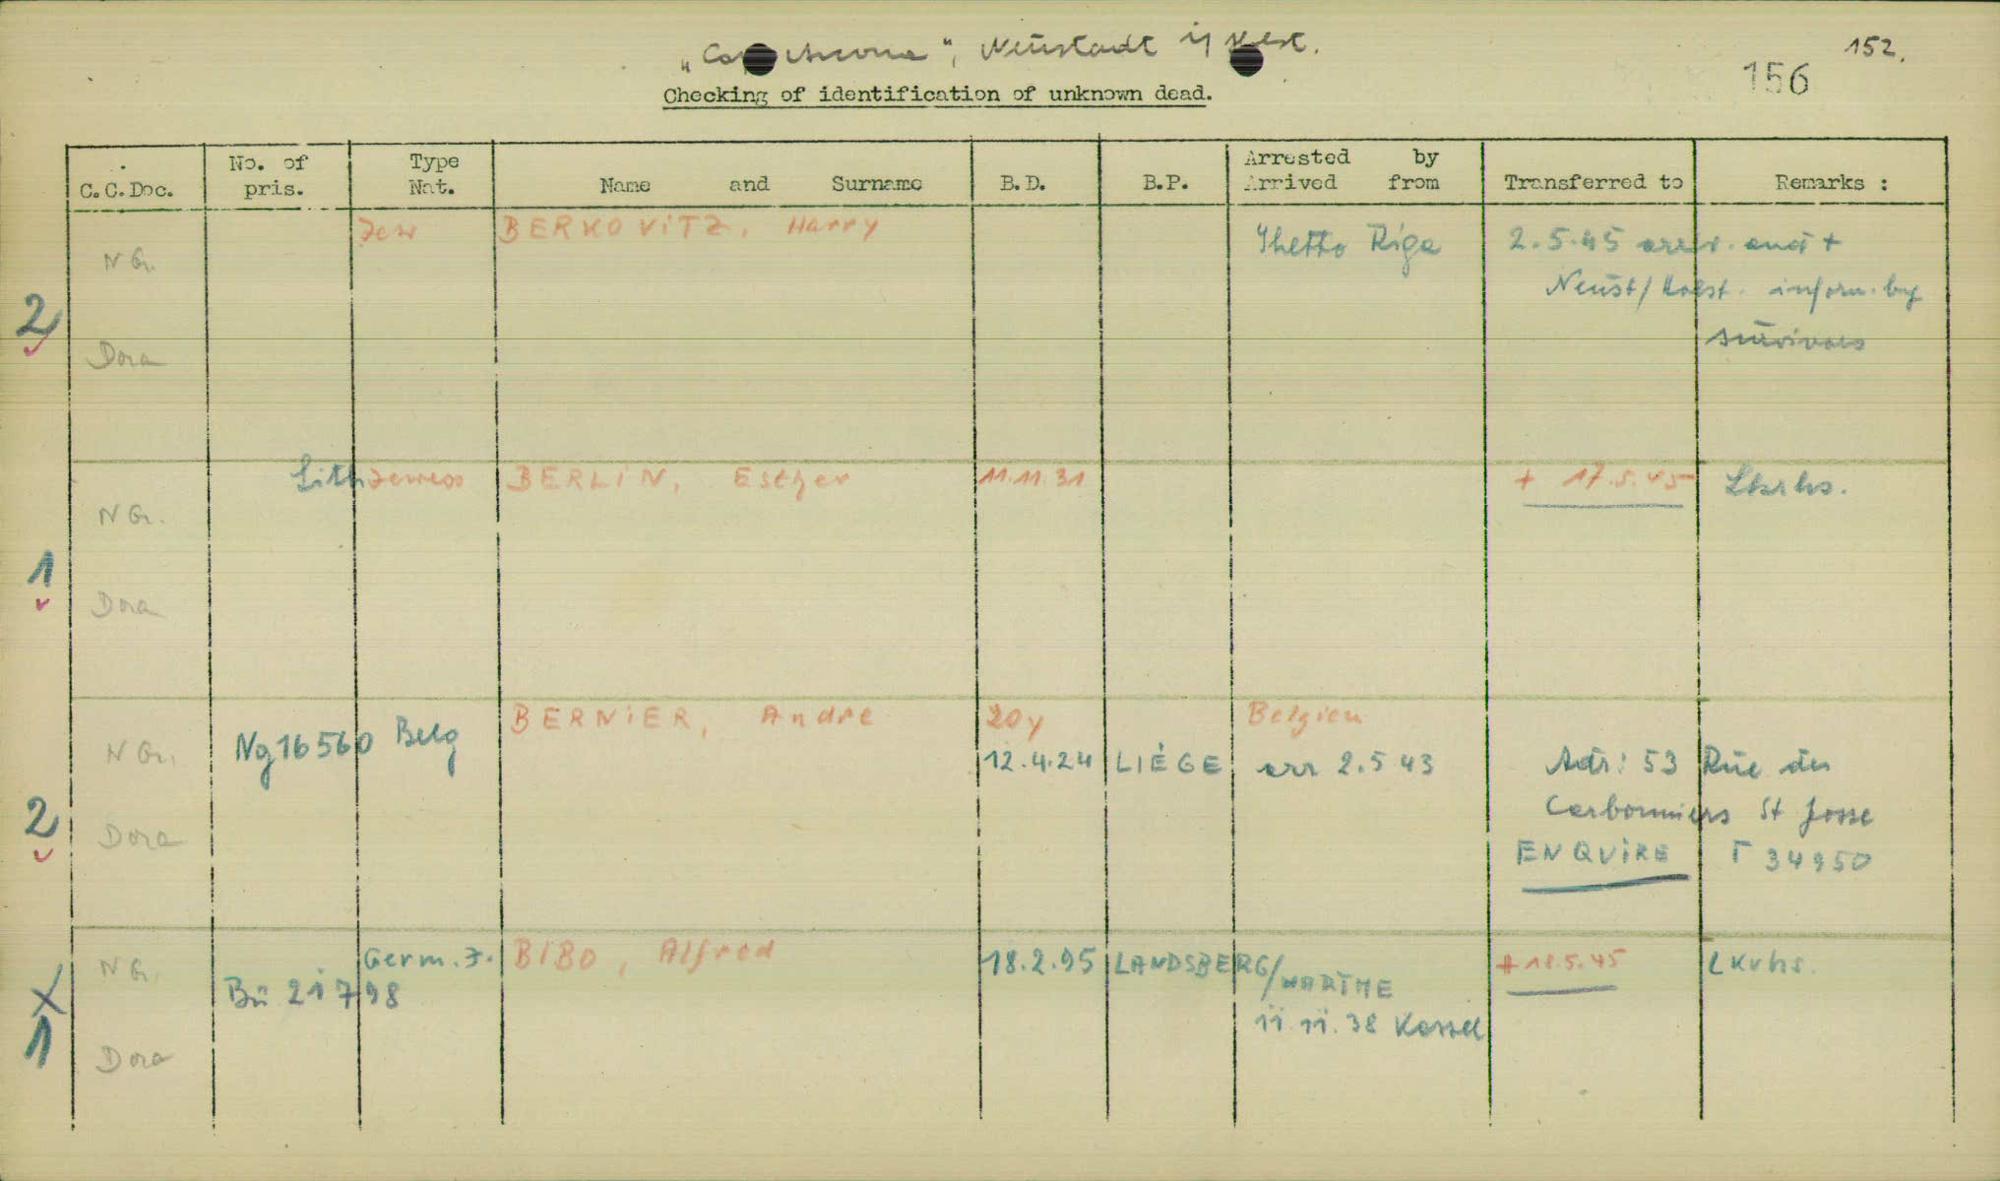 „Cap Arcona“, Neustadt i/ Holst.
152.
156
Checking of identification of unknown dead.
C.C.Doc. No. of pris. Type Nat. Name and Surname B.D. B.P. Arrested by Arrived from Transferred to Remarks :
Jew BERKOVITZ, Harry Ghetto Riga 2.5.45 arriv. and +
N G.
Neust/Holst. inform. by
2
survivors
Dora
Lith Jewess BERLIN, Esther 11.11.31 + 17.5.45 Lkrhs.
N G.
1
Dora
BERNIER, Andre 20y Belgien
N G. Ng 16560 Belg 12.4.24 LIÉGE arr 2.5 43 Adr: 53 Rue des
Carbonniers St Josse
2
Dora ENQUIRE T 34950
N G. Germ. J. BIBO, Alfred 18.2.95 LANDSBERG/ + 18.5.45 Lkrhs.
Bü 21798 WARTHE
X
11.11.38 Kassel
1
Dora